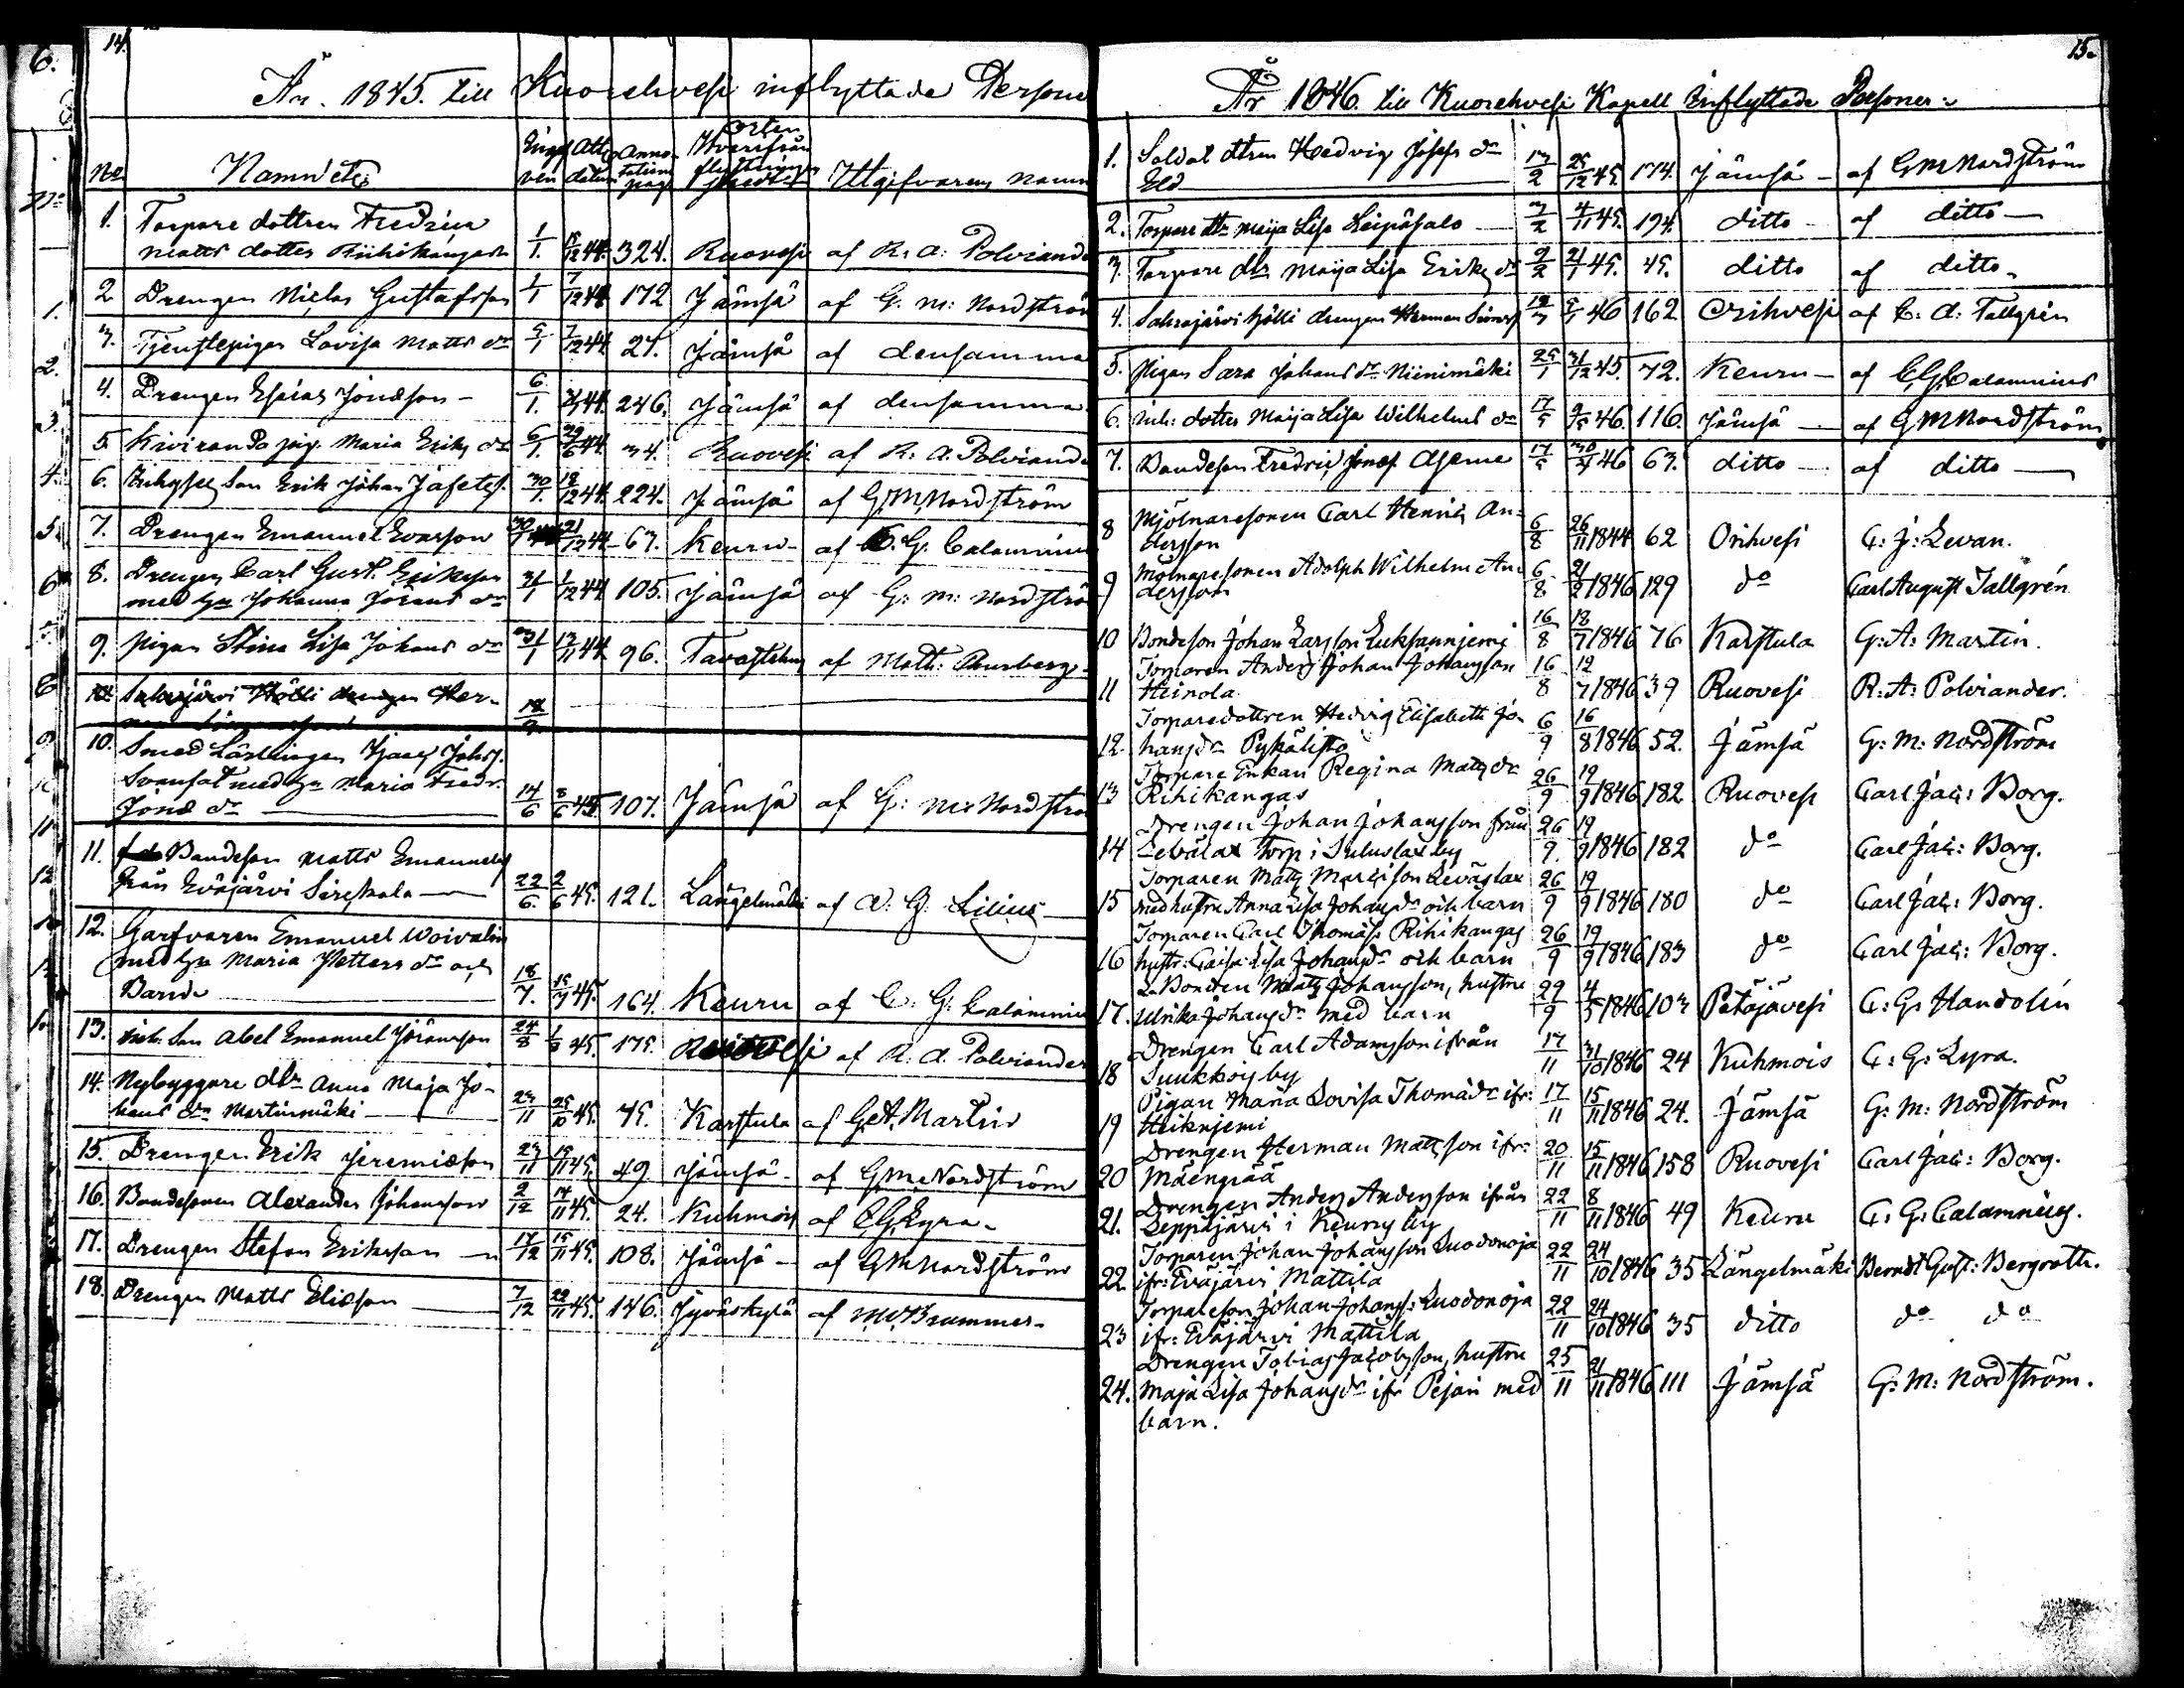 14.
År 1845. till Kuorehvesi inflyttade Persone
No Namn etc. Ingif ven Att. datum Annotations pag. Orten hvarifrån flyttning skedt Utgifvarens namn
1. Torpare dottren Fredrica
Matts dotter Riihikangas 1/1 15/12 44. 324. Ruovesi af R. A. Polviande
2 Drengen Niclas Gustafsson 1/1 7/12 44 172 Jämsä af G. M: Nordström
3. Tjenstepigan Lovisa Matts dr 5/1 7/12 44 27. Jämsä af densamma
4. Drengen Esaias Jonæson - 6/1. 44. 246. Jämsä af densamma
5. Kiviranda pig. Maria Eriks dr 6/1. 29/6 44 34. Ruovesi af R. A. Polviande
6. Inhyses Son Erik Johan Jafetss. 30/1. 18/12 44. 224. Jämsä af G. M. Nordström
7. Drengen Emanuel Evarson 21/12 44 - 67. Keuru - af C. G. Calamnius
8. Drengen Carl Gust. Eriksson
med hu Johanna Jörans dr 31/1 1/12 44 105. Jämsä af G: M: Nordströ
9. Pigan Stina Lisa Johans dr 31/1 13/11 44 96. Tavastehus af Math:
10. Sahrajärvi Hölli drengen Her-
10. Smed Lärlingen Isaac Johss.
Svensat med hu Maria Fredr.
Jonæ dr 14/6 8/6 45. 107. Jämsä af G: M: Nordströ
11. Bondeson Matts Emanuels
från Eväjärvi Sirckala 22/6. 2/6 45. 121. Längelmäki af A. G. Lilius
12. Garfvaren Emanuel Woivalin
med hu Maria Petters dr och
Barn 18/7. 15/7 45. 164. Keuru af C: G: Calamnius
13. Inh. Son Abel Emanuel Jöransson 24/8 45. 175. Ruovesi af R. A. Polviander
14. Nybyggare dtr. Anna Maja Jo-
hans dr Martinmäki 23/11 25/10 45. 75. Karstula af G. A. Martin
15. Drengen Erik Jeremiæson 23/11 15/11 45. 49. Jämsä - af G. M. Nordström
16. Bondesonen Alexander Johansson 2/12 14/11 45. 24. Kuhmois af C. G. Lyra -
17. Drengen Stefan Eriksson 17/12 15/11 45. 108. Jämsä - af G. M. Nordström
18. Drengen Matts Eliæson 7/12 22/11 45. 146. Jyväskylä af M. W. Brummer -
15.
År 1846. till Kuorehvesi Kapell Inflyttade Personer
1. Soldat dtren Hedvig Josefs dr
Eld 13/2 25/12 45. 174. Jämsä - af G M Nordström
2. Torpare dtr Maija Lisa Leipäsalo 3/2 4/11 45. 194. ditto - af ditto -
3. Torpare dtr Maija Lisa Eriks dr 2/2 21/1 45. 45. ditto af ditto -
4. Sahrajärvi Hölli drengen Herman Simonss 46 162 Orihvesi af C. A. Tallgrén
5. Pigan Sara Johans dr Niinimäki 25/1 31/12 45. 72. Keuru - af C. G. Calamnius
6. Inh: dotter Maija Lisa Wilhelms dr 17/5 46. 116. Jämsä - af G M Nordström
7. Bondeson Fredric Josef Aseme 17/5 46 67. ditto - af ditto
8 Mjölnaresonen Carl Henric An-
dersson 6/8 26/11 1844 62 Orihvesi C: J: Levan.
9 Mölnaresonen Adolph Wilhelm An-
dersson 6/8 21/2 1846 129 do Carl August Tallgrén
10 Bondeson Johan Larsson Luksanniemi 16/8 18/7 1846 76 Karstula G: A: Martin.
11 Torparen Anders Johan Johansson
Heinola. 16/8 12/7 1846 39 Ruovesi R: A: Polviander.
12. Torparedottren Hedvig Elisabeth Jo-
hansdr Pykälistö 6/9 16/8 1846 52. Jämsä G: M: Nordström
13 Torpare Enkan Regina Matts dr
Rihikangas 26/9 19/9 1846 182 Ruovesi Carl Jac: Borg.
14 Drengen Johan Johansson från
Torp i by 26/9. 19/9 1846 182 do Carl Jac: Borg.
15 Torparen Matts
med hustru Anna Lisa Johansdr och barn 26/9 19/9 1846 180 do Carl Jac: Borg.
16 Torparen Carl Thomæs: Rihikangas
hustr: Caisa Lisa Johansdr och barn 26/9 19/9 1846 183 do Carl Jac: Borg.
17. Bonden Matts Johansson, hustru
Ulrika Johansdr med barn 29/9 4/5 1846 103 Petäjävesi C: G: Handolin
18 Drengen Carl Adamsson ifrån
Suukkois by 17/11 31/10 1846 24 Kuhmois C: G: Lyra.
19 Pigan Maria Lovisa Thomædr ifr:
Heikniemi 17/11 15/11 1846 24. Jämsä G: M: Nordström
20 Drengen Herman Mattsson ifr:
Mäenpää 20/11 15/11 1846 158 Ruovesi Carl Jac: Borg.
21. Drengen Anders Andersson ifrån
Leppäjärvi i Keuru by 22/11 8/11 1846 49 Keuru C: G: Calamnius.
22. Torparen Johan Johansson Luodonoja
ifr: Eväjärvi Mattila 22/11 24/10 1846 35 Längelmäki Berndt Gust: Bergroth.
23 Torpareson Johan Johanss: Luodonoja
ifr: Eväjärvi Mattila 22/11 24/10 1846 35 ditto do do
24. Drengen Tobias Jacobsson, hustru
Maja Lisa Johansdr ifr Pejari med
barn. 25/11 21/11 1846 111 Jämsä G: M: Nordström.